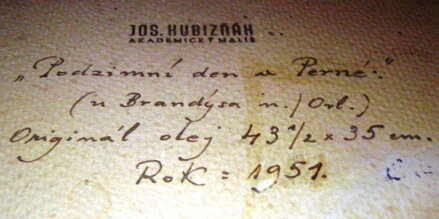 JOS. HUBIZŇÁK
AKADEMICKÝ MALÍŘ
„Podzimní den v Perné:"
(u Brandýsa n./Orl.)
Originál olej 43½ x 35 cm.
Rok = 1951.